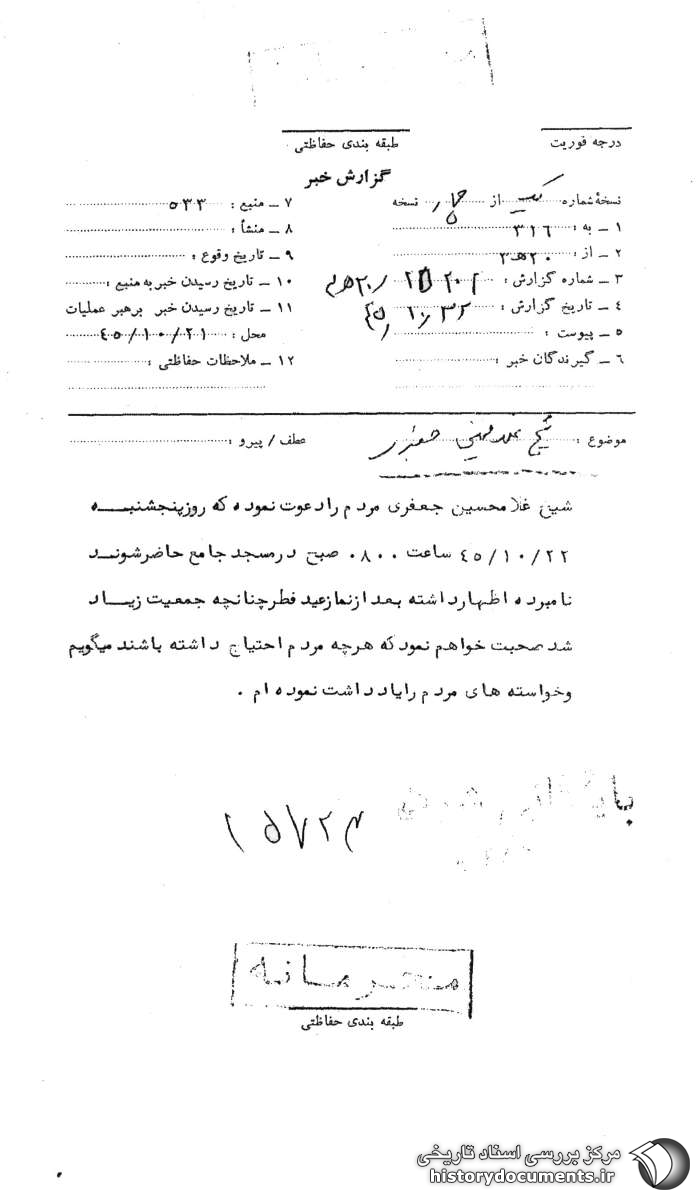 درجه فوریت
طبقه بندی حفاظتی
گزارش خبر
نسخهٔ شماره یک از چهار نسخه
۱ ــ به : ۳۱۶
۲ ــ از : ۲۰ ه‍ ۳
۳ ــ شماره گزارش :
۴ ــ تاریخ گزارش :
۵ ــ پیوست :
۶ ــ گیرندگان خبر :
۷ ــ منبع : ۵۳۳
۸ ــ منشأ :
۹ ــ تاریخ وقوع :
۱۰ ــ تاریخ رسیدن خبر به منبع :
۱۱ ــ تاریخ رسیدن خبر برهبر عملیات
محل : ۴۵/۱۰/۲۱
۱۲ ــ ملاحظات حفاظتی :
موضوع : شیخ غلامحسین جعفری
عطف / پیرو :
شیخ غلامحسین جعفری مردم را دعوت نموده که روز پنجشنبه
۴۵/۱۰/۲۲ ساعت ۰۸۰۰ صبح در مسجد جامع حاضر شوند
نامبرده اظهار داشته بعد از نماز عید فطر چنانچه جمعیت زیاد
شد صحبت خواهم نمود که هرچه مردم احتیاج داشته باشند میگویم
وخواسته های مردم را یادداشت نموده ام .
محرمانه
طبقه بندی حفاظتی
مرکز بررسی اسناد تاریخی
historydocuments.ir